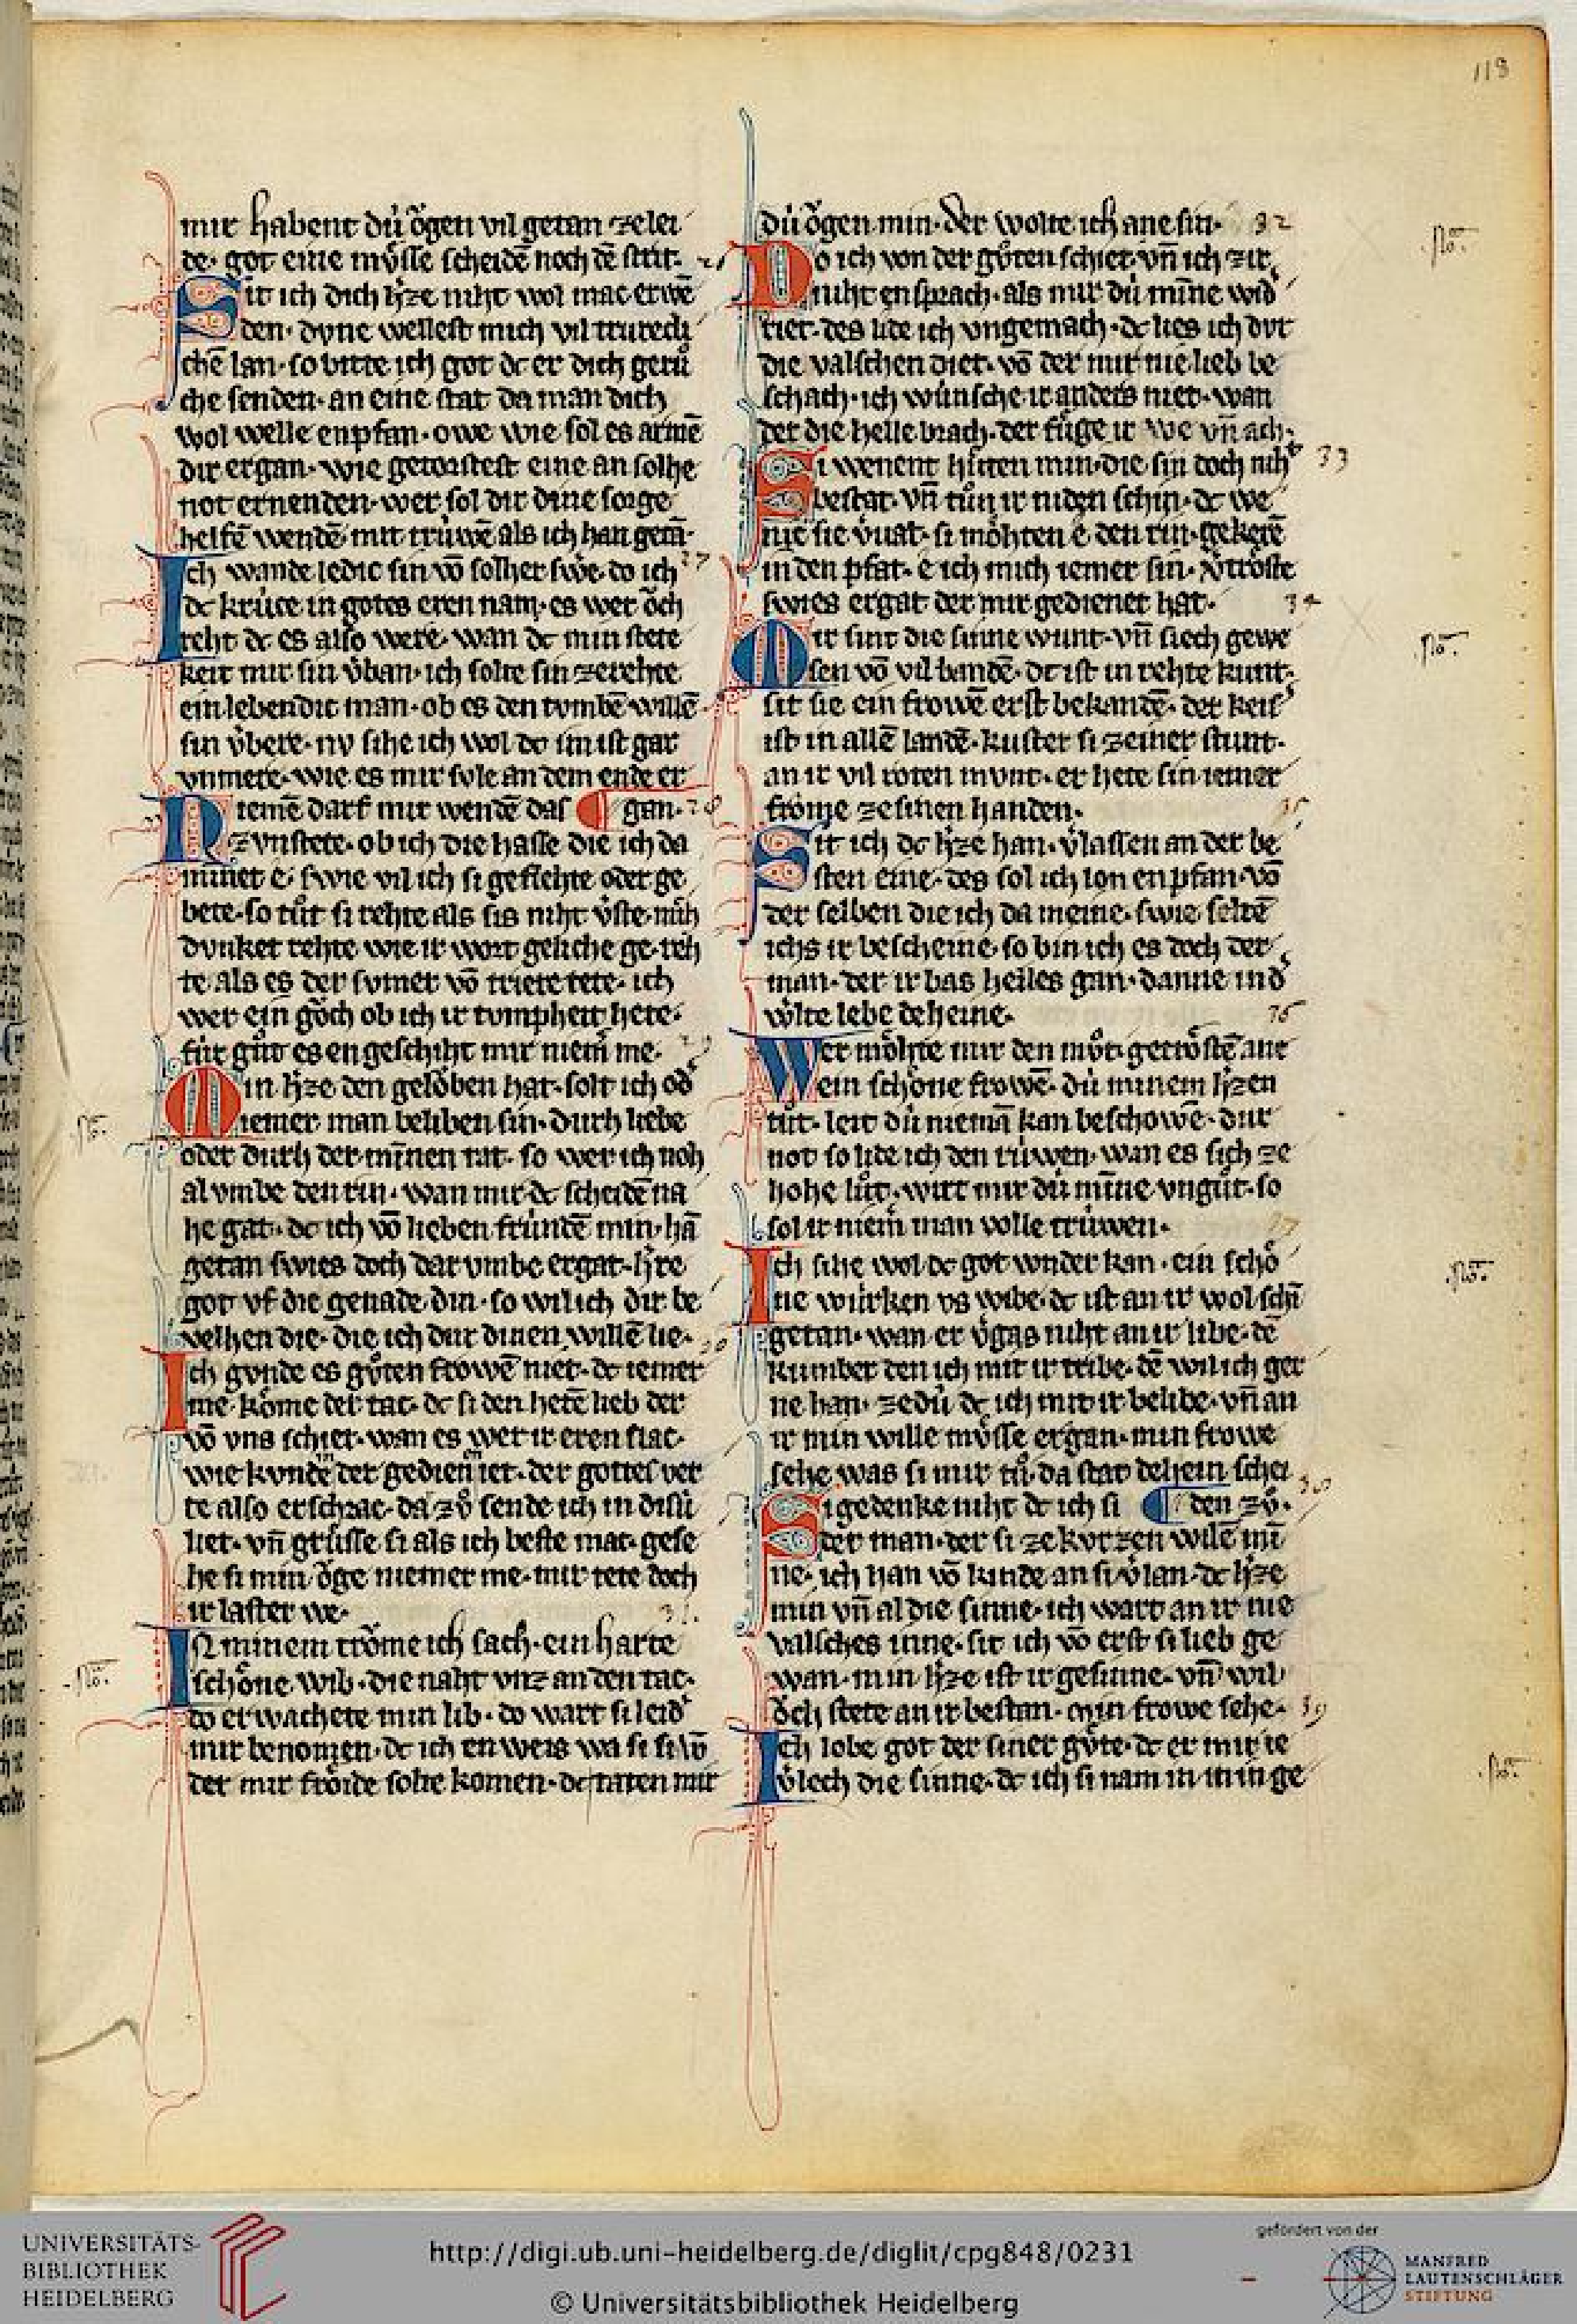 118
mir habent dú ỏgen vil getan ze lei
de· got eine mv̊sse scheidē noch dē strit·
Sit ich dich hˀze niht wol mac erwē
den· dvne wellest mich vil trurecli
chē lan· so bitte ich got dc er dich gerů
che senden· an eine stat da man dich
wol welle enpfan· owe wie sol es armē
dir ergan· wie getorstest eine an solhe
not ernenden· wer sol dir dine sorge
helfē wendē mit trúwē als ich han getā·
27
Ich wande ledic sin vō solher swˀe· do ich
dc krúce in gotes eren nam· es wer ỏch
reht dc es also were· wan dc min stete
keit mir sin vˀban· ich solte sin ze rehte
ein lebendic man· ob es den tvmbē willē
sin vˀbere· nv sihe ich wol dc im ist gar
vnmere· wie es mir svle an dem ende er
Niemē darf mir wendē das ¶ gan· 28
z vnstete· ob ich die hasse die ich da
minet e· swie vil ich si geflehte oder ge
bete· so tůt si rehte als sis niht vˀste· mih
dvnket rehte wie ir wort geliche ge· reh
te als es der svmer vō triere tete· ich
wer ein gỏch ob ich ir tvmpheit hete·
fúr gůt es engeschiht mir niem̄ me· 29
Min hˀze den gelỏben hat· solt ich odˀ
iemer man beliben sin· durh liebe
oder durh der minnen rat· so wer ich noh
al vmbe den rin· wan mir dc scheidē na
he gat· dc ich vō lieben frúndē min· hā
getan swies doch dar vmbe ergat· hˀre
got vf die genade din· so wil ich dir be
velhen die· die ich dur dinen willē lie· 30
Ich gvnde es gůten frowē niet· dc iemer
me kome der tac· dc si den heten lieb der
vō vns schiet· wan es wer ir eren slac·
wie kvnde der gedienē iet· der gottes ver
te also erschrac· da zů sende ich in disú
liet· vn̄ grůsse si als ich beste mac· gese
he si min ỏge niemer me· mir tete doch
ir laster we· 31.
IN minem trỏme ich sach· ein harte
schône wib· die naht vnz an den tac·
do erwachete min lib· do wart si leidˀ
mir benomen· dc ich enweis wa si si vō
der mir frỏide solte komen· dc taten mir
dú ỏgen min· der wolte ich ane sin· 32
Do ich von der gůten schiet· vn̄ ich zir
niht ensprach· als mir dú mīne widˀ
riet· des lide ich vngemach· dc lies ich dvr
die valschen diet· vō der mir nie lieb be
schach· ich wúnsche ir anders niet· wan
der die helle brach· der fůge ir we vn̄ ach·
Si wenent hu̍ten min· die sin doch niht 33
bestat· vn̄ tůn ir niden schin· dc we
nic sie vˀvat· si môhten e den rin· gekerē
in den pfat· e ich mich iemer sin· vˀtrôste
swies ergat der mir gedienet hat· 34
Mir sint die sinne wunt· vn̄ siech gewe
sen vō vil bandē· dc ist in rehte kunt·
sit sie ein frowē erst bekandē· der keisˀ
ist in allē landē· kuster si zeiner stunt·
an ir vil roten mvnt· er hete sin iemer
frome ze sinen handen· 35
Sit ich dc hˀze han· vˀlassen an der be
sten eine· des sol ich lon enpfan· vō
der selben die ich da meine· swie seltē
ichs ir bescheine· so bin ich es doch der
man· der ir bas heiles gan· danne in dˀ
wˀlte lebe deheine· 36
Wer môhte mir den můt· getrôstē ane
ein schône frowē· dú minem hˀzen
tůt· leit dú niemā kan beschowē· dur
not so lide ich den rúwen· wan es sich ze
hohe hůt· wirt mir dú mīne vngůt· so
sol ir niem̄ man volle trúwen· 37
Ich sihe wol dc got wnder kan· ein schô
ne wúrken vs wibe· dc ist an ir wol schī
getan· wan er vˀgas niht an ir libe· dē
kumber den ich mit ir tribe· dē wil ich ger
ne han· ze dú dc ich mit ir belibe· vn̄ an
ir min wille mv̊sse ergan· min frowe
sehe was si mir tů· da stat dehein schei
Si gedenke niht dc ich si ¶ den zů· 38
der man· der si ze kvrzen wilē mī
ne· ich han vō kinde an si vˀlan· dc hˀze
min vn̄ al die sinne· ich wart an ir nie
valsches inne· sit ich vō erst si lieb ge
wan· min hˀze ist ir gesinne· vn̄ wil
ỏch stete an ir bestan· min frowe sehe· 39
Ich lobe got der siner gůte· dc er mir ie
vˀlech die sinne· dc ich si nam in min ge
UNIVERSITÄTS-
BIBLIOTHEK
HEIDELBERG
http://digi.ub.uni-heidelberg.de/diglit/cpg848/0231
© Universitätsbibliothek Heidelberg
gefördert von der
MANFRED
LAUTENSCHLÄGER
STIFTUNG